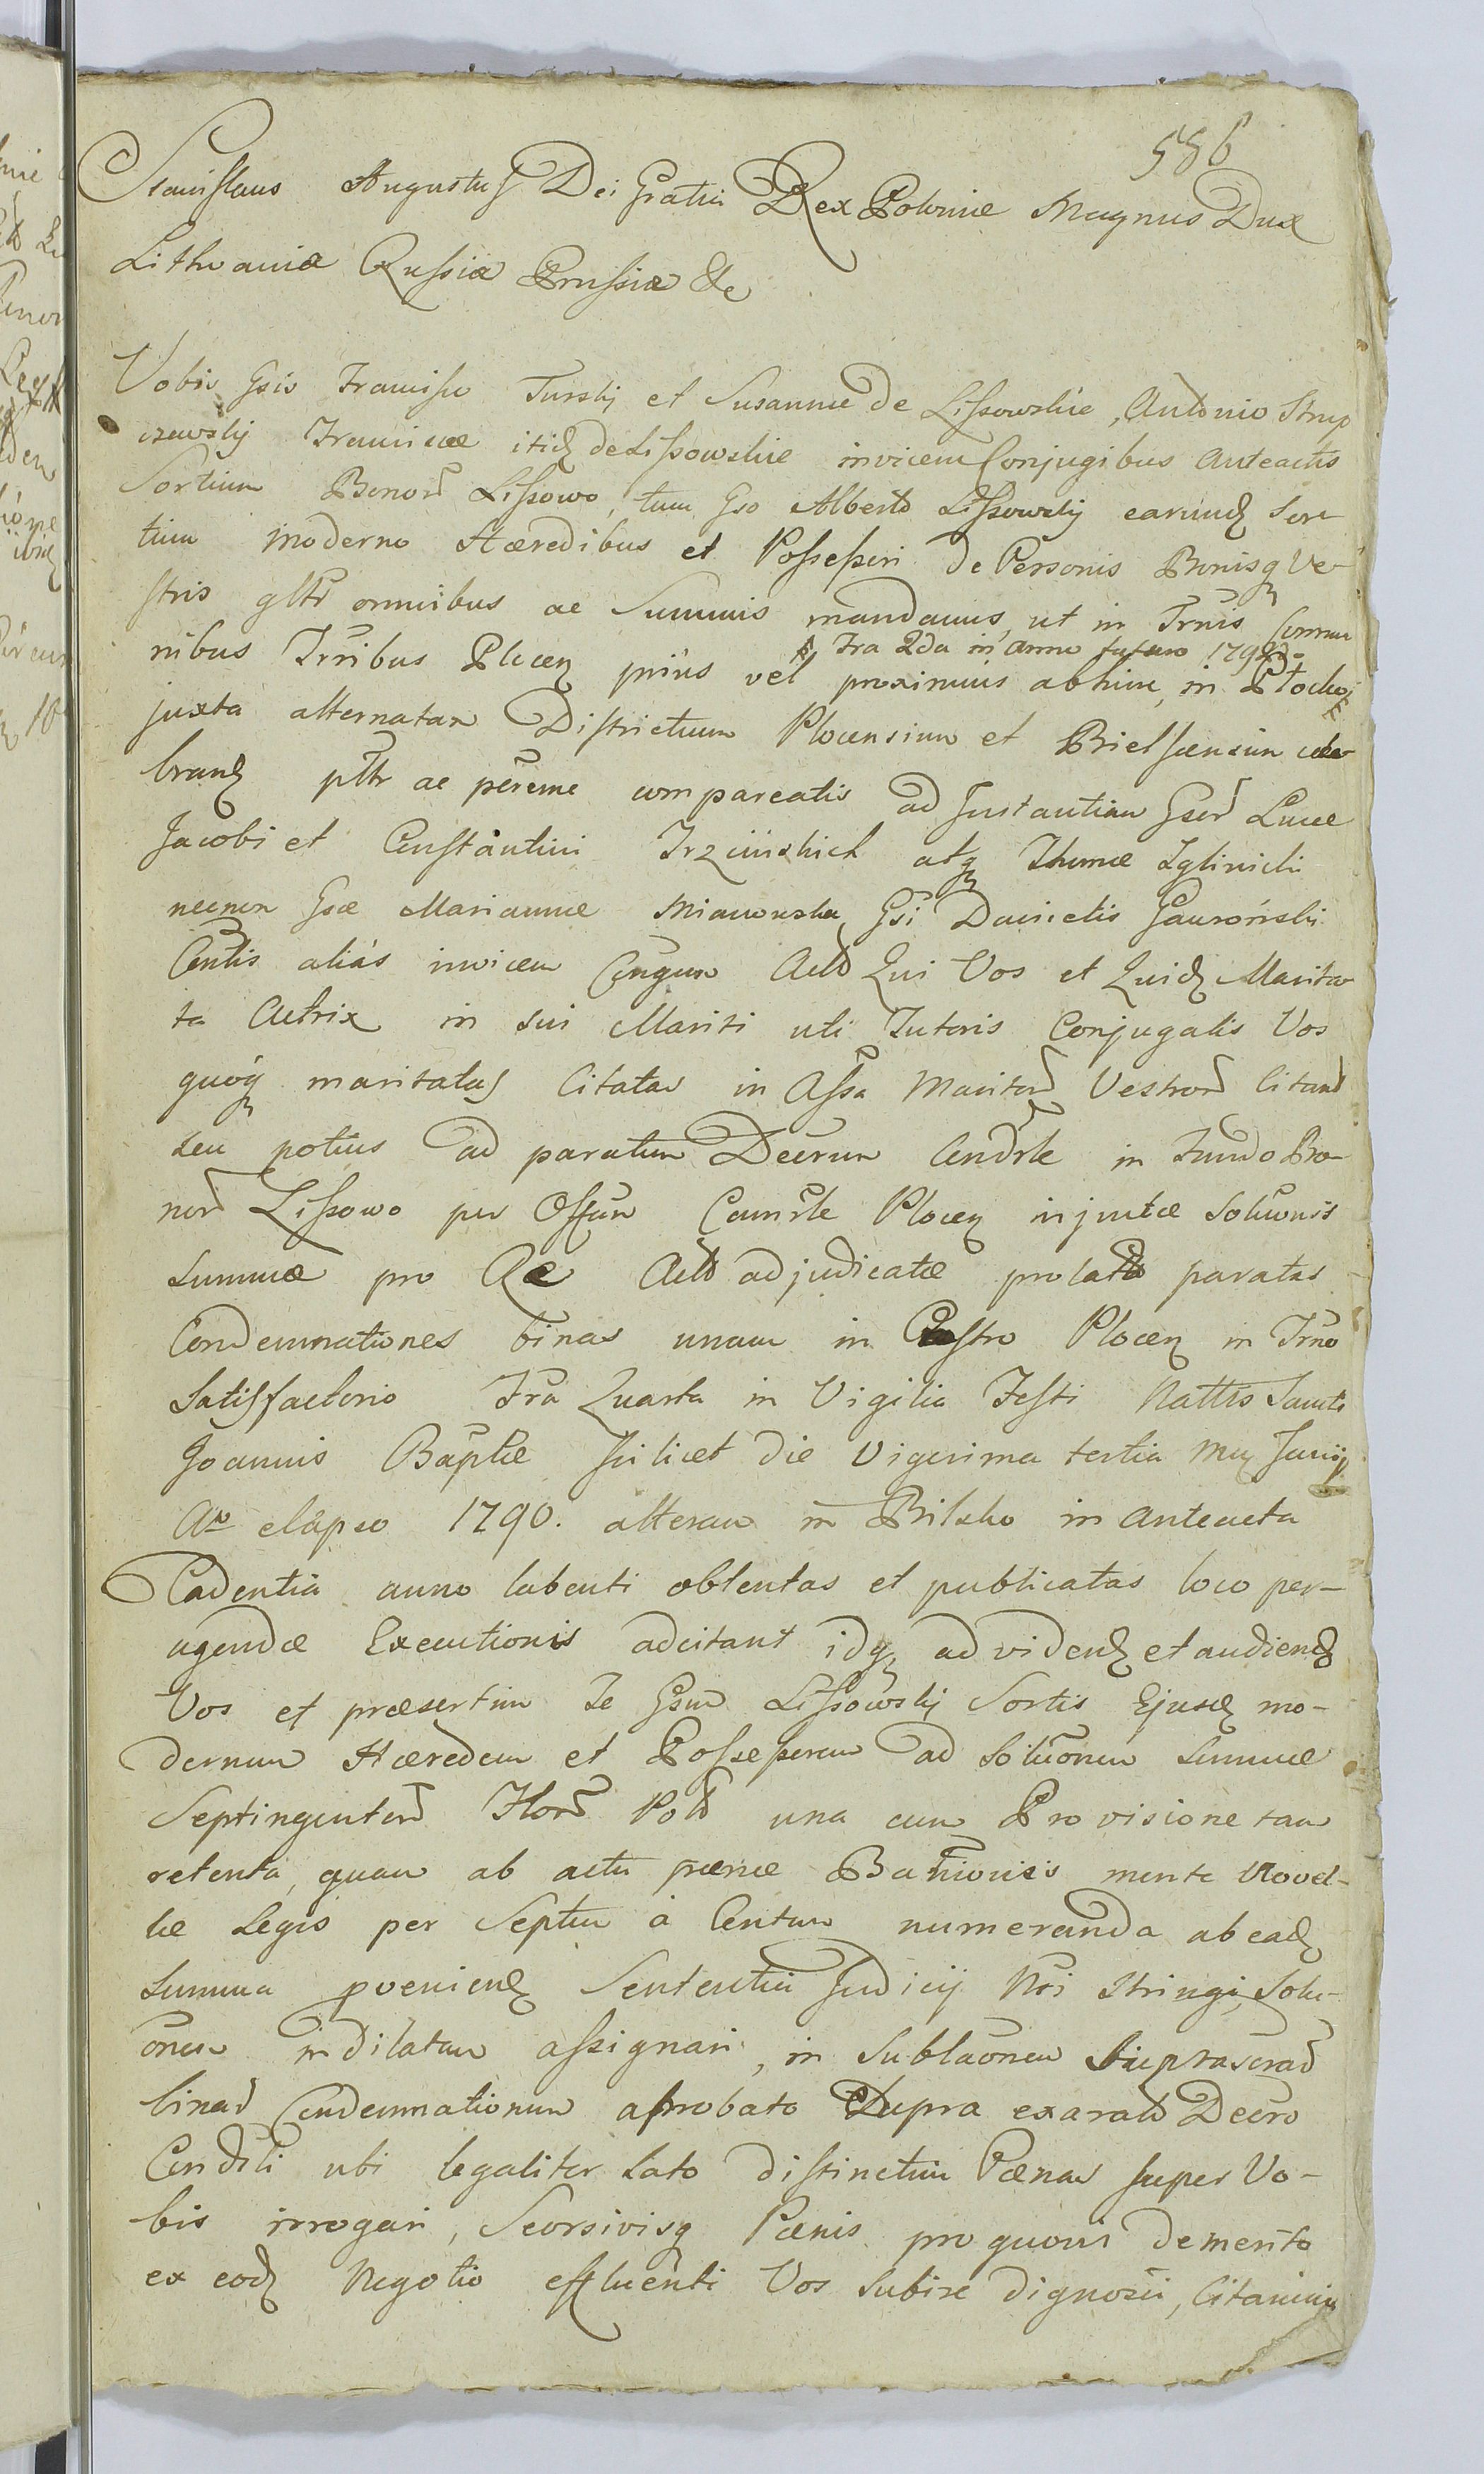 586
Stanislaus Augustus Dei Gratia Rex Poloniæ Magnus Dux
Lithvaniæ Russiæ Prussiæ &c
Vobis Gsis Francisco Turskij et Susannæ de Lissowskie, Antonio Strup
czewskij Franciscæ itid de Lissowskie invicem Conjugibus Anteactis
Sortium Bonor Lissowo, tum Gso Alberto Lissowskij earund Sor
tium moderno Hæredibus et Possessori de Personis Bonisq Ve-
stris gltr omnibus ac Summis mandamus, ut in Trnis Commu
nibus Trribus Plocen prius vel proximius abhinc, in Płocko
Fra 2da in Anno futuro 1792
juxta alternatam Districtuum Plocensium et Bielscensium cele
brand pltr ac pereme compareatis ad Instantiam Gsor Lucæ
Jacobi et Constantini Trzcinskich atq Thomæ Zglinicki
necnon Gsæ Mariannæ Mianowska Gsi Danielis Gawroński
Cntis aliás invicem Congum Act Qui Vos et Quid Marita
ta Actrix in sui Mariti uti Tutoris Conjugalis Vos
quoq maritatas Citatas in Assa Maritor Vestror Citant
seu potius ad paratum Decrum Condrle in Fundo Bo-
nor Lissowo per Offum Camrle Plocen injunctæ Soluonis
summæ pro Re Act adjudicatæ prolat paratas
Condemnationes binas unam in Castro Plocen in Trno
Satisfactorio Fra Quarta in Vigilia Festi Nattis Sancti
Joannis Baptæ scilicet die Vigesima tertia Mens Junij
Ao elapso 1790. alteram in Bilsko in Anteacta
Cadentia anno labenti obtentas et publicatas loco per-
agendæ Executionis adcitant idq, ad vidend et audiend
Vos et præsertim Te Gsum Lissowskij Sortis Ejusd mo-
dernum Hæredem et Possessorem ad Soluonem Summæ
Septingentor Flor Pol una cum Provisione tam
retenta, quam ab actu pænæ Bannionis mente Novel-
læ Legis per Septem à Centum numeranda ab ead
summa pveniend Sententia Judicij Nri Stringi, Solu-
onem indilatam assignari, in Sublaonem Suprascrat
binar Condemnationum aprobato Supra exarat Decro
Condrli uti legaliter lato distinctim Pænas super Vo-
bis irrogari, Seorsivisq Pænis pro quovis demerito
ex eod Negotio effluenti Vos subire dignosci, Citamini